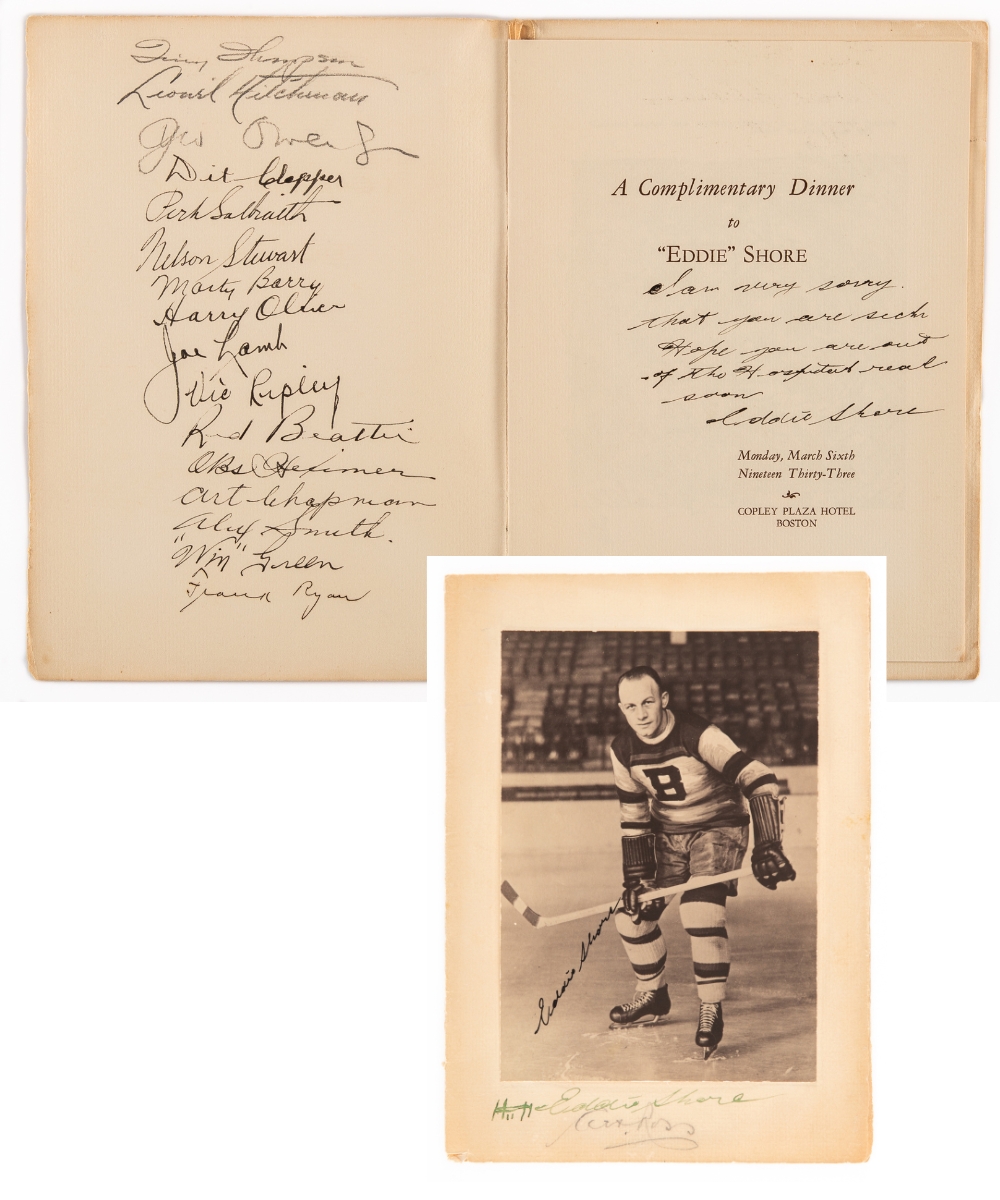 Tiny Thompson
Lionel Hitchman
Geo Owen Jr
Dit Clapper
Perk Galbraith
Nelson Stewart
Marty Barry
Harry Oliver
Joe Lamb
Vic Ripley
Red Beattie
Obs Heximer
Art Chapman
Alex Smith.
"Win" Green
Frank Ryan
A Complimentary Dinner
to
"EDDIE" SHORE
I am very sorry.
that you are sick
Hope you are out
of the Hospital real
soon
Eddie Shore
Monday, March Sixth
Nineteen Thirty-Three
COPLEY PLAZA HOTEL
BOSTON
B
Eddie Shore
Eddie Shore
Art Ross